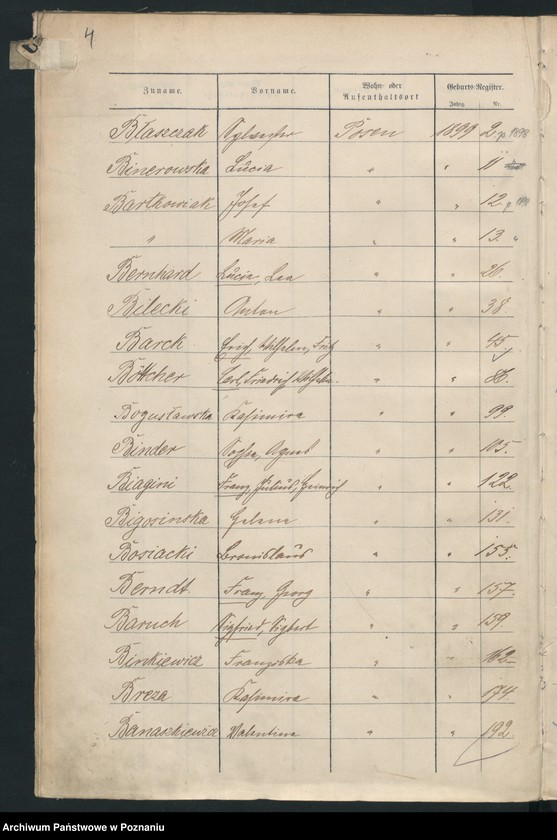 4
Zuname. Vorname. Wohn- oder Aufenthaltsort Geburts-Register. Jahrg. Nr.
Błaszczak Sylvester Posen 1899 2 1898
Binerowska Lucia " " 11
Bartkowiak Josef " " 12.
" Maria " " 13. "
Bernhard Lucie, Lea " " 26.
Bilecki Anton " " 38.
Barck Erich, Wilhelm, Fritz " " 45
Böttcher Carl, Friedrich Wilhelm. " " 86.
Bogusławska Kasimira " " 99.
Binder Sophie, Agnes " " 105.
Biagini Franz, Julius, Heinrich " " 122.
Bigosinska Helene " " 131.
Bosiacki Bronislaus " " 155.
Berndt Franz, Georg " " 157.
Baruch Sigfried, Sigbert " " 159.
Binkiewicz Franziska " " 162
Breza Kasimira " " 174.
Banaszkiewicz Valentine " " 192.
Archiwum Państwowe w Poznaniu